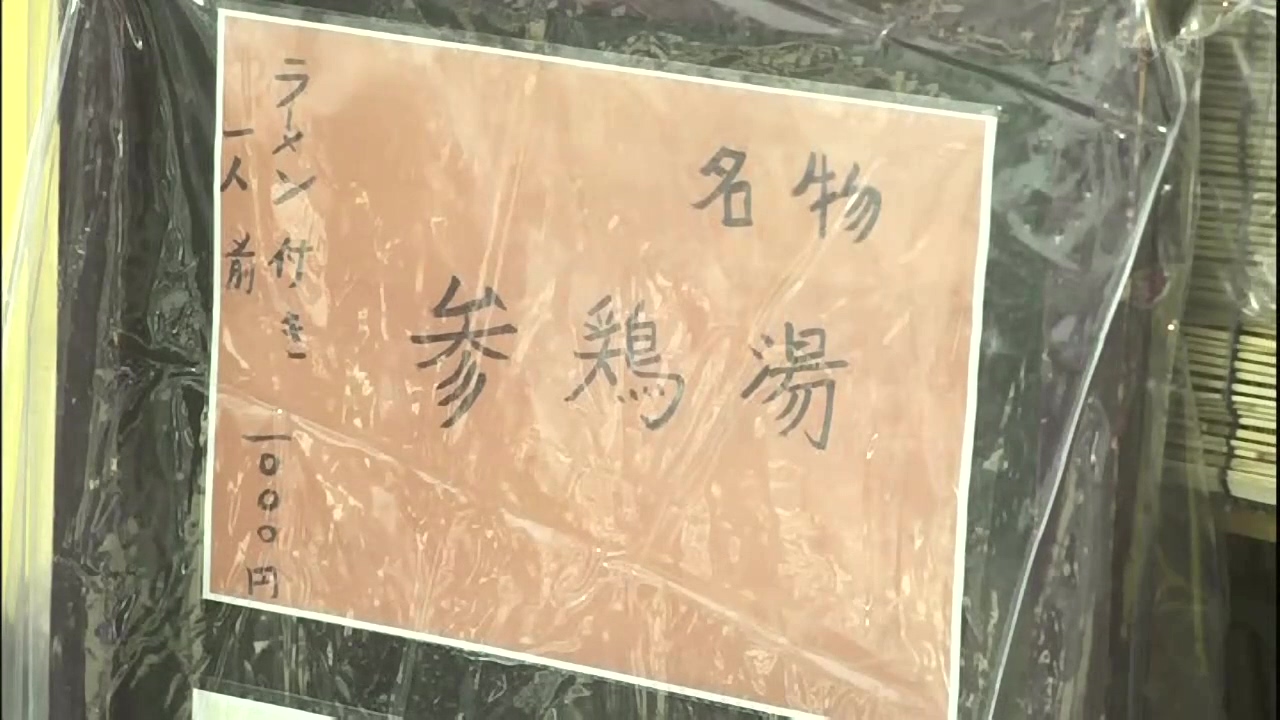 名物
参鶏湯
ラーメン付き
一人前
一000円